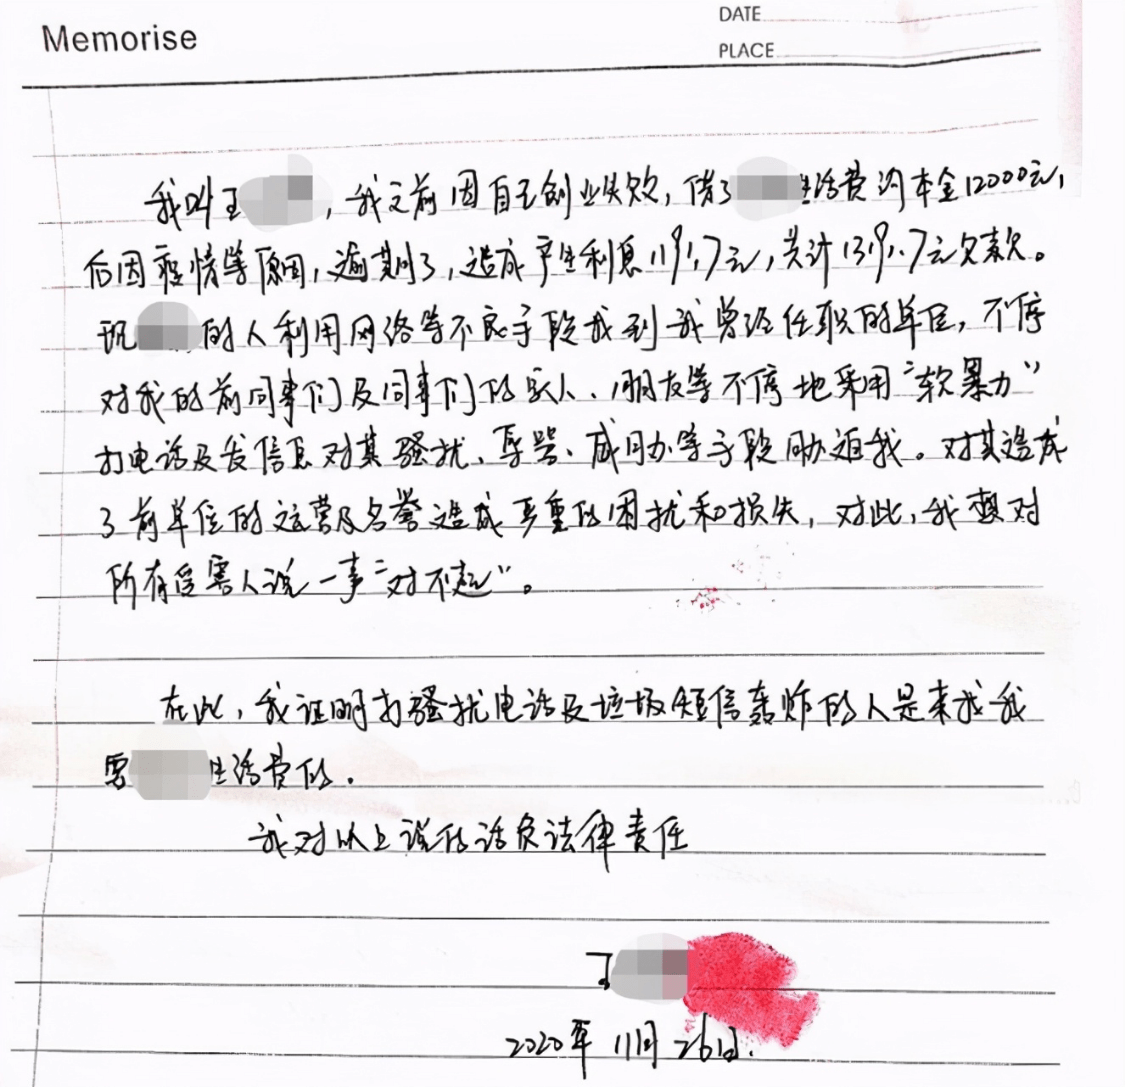 Memorise
DATE
PLACE
我叫王，我之前因自己创业失败，借了生活费的本金12000元，
后因疫情等原因，逾期了，造成产生利息1191.7元，共计13191.7元欠款。
现的人利用网络等不良手段找到我曾经任职的单位，不停
对我的前同事们及同事们的家人、朋友等不停地采用“软暴力”
打电话及发信息对其骚扰、辱骂、威胁等手段胁迫我。对其造成
了前单位的运营及名誉造成严重的困扰和损失，对此，我想对
所有受害人说一声“对不起”。
在此，我证明打骚扰电话及垃圾短信轰炸的人是来找我
要生活费的.
我对以上说的话负法律责任
王
2020年11月26日.